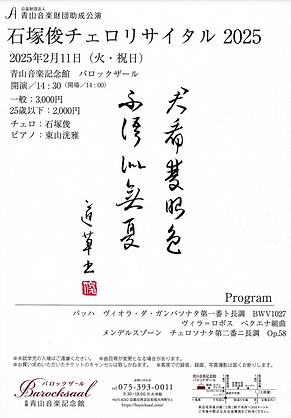 公益財団法人
青山音楽財団助成公演
石塚俊チェロリサイタル 2025
2025年2月11日（火・祝日）
青山音楽記念館　バロックザール
開演／14：30（開場／14：00）
一般：3,000円
25歳以下：2,000円
チェロ：石塚俊
ピアノ：東山洸雅
君看雙眼色
不語似無憂
道草書
Program
バッハ　ヴィオラ・ダ・ガンバソナタ第一番ト長調　BWV1027
ヴィラ＝ロボス　ペクエナ組曲
メンデルスゾーン　チェロソナタ第二番ニ長調　Op.58
※未就学児の入場はご遠慮ください。　※曲目等が変更となる場合があります。
※お買い求めいただいたチケットのキャンセルは致しかねます。　※客席での録音、録画、写真撮影は固くお断りします。
バロックザール
Barocksaal
青山音楽記念館
tel.075-393-0011
https://barocksaal.com/